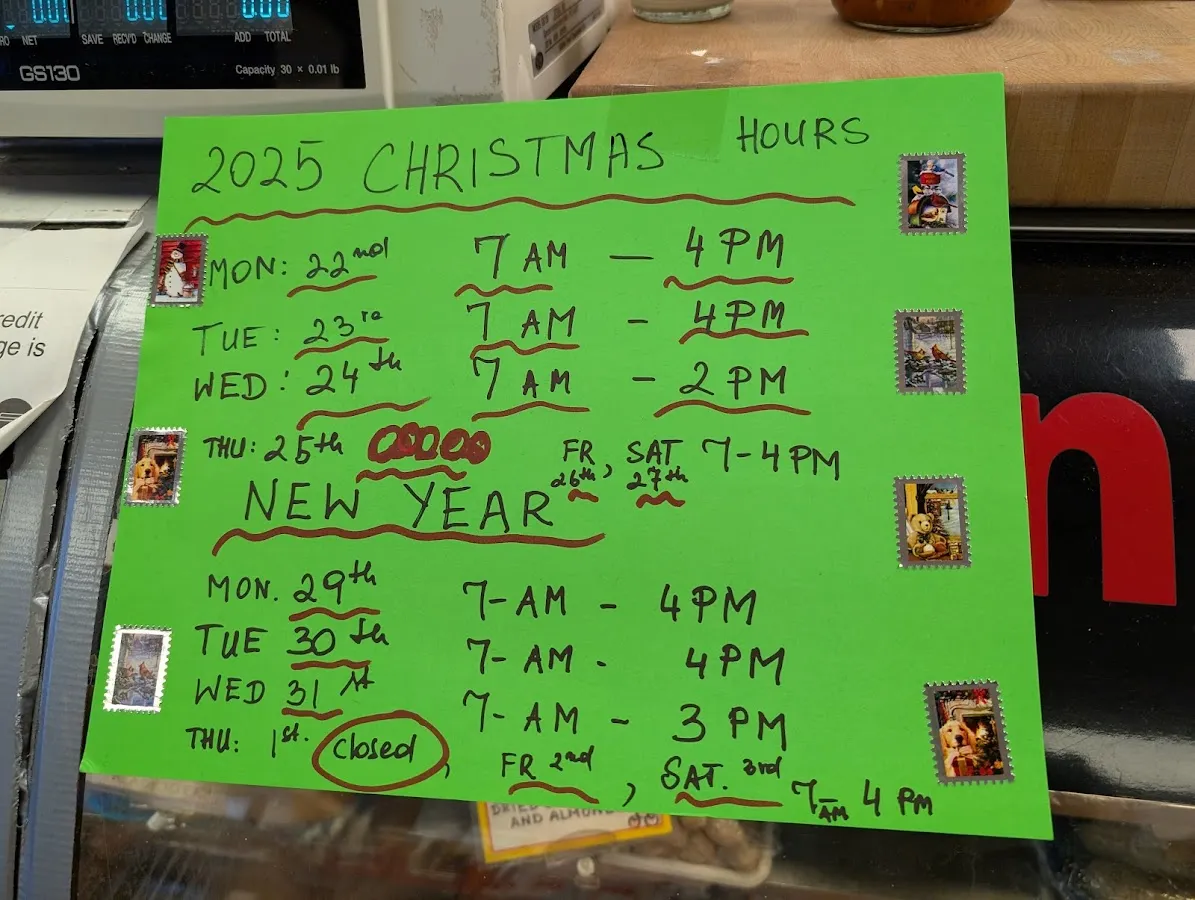 NET SAVE RECV'D CHANGE ADD TOTAL
GS130 Capacity 30 × 0.01 lb
2025 CHRISTMAS HOURS
MON: 22nd 7 AM — 4 PM
TUE: 23rd 7 AM - 4PM
WED: 24th 7 AM - 2 PM
THU: 25th FR, SAT 7-4PM
26th 27th
NEW YEAR
MON. 29th 7-AM - 4PM
TUE 30th 7-AM - 4PM
WED 31st 7-AM - 3 PM
THU: 1st. closed, FR 2nd, SAT. 3rd 7AM 4 PM
edit
ge is
n
AND ALMOND